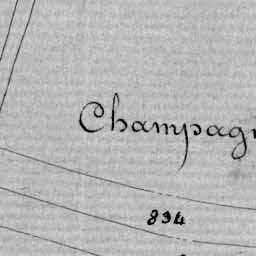 Champagn
894